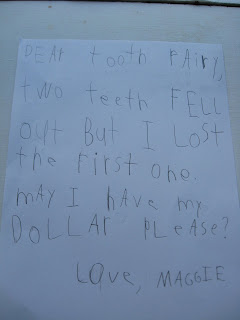 DEAr tooth FAiry,
two teeth FELL
out But I Lost
the First one.
mAy I hAve my
DoLLAr pLeAse?
Love, MAGGIE